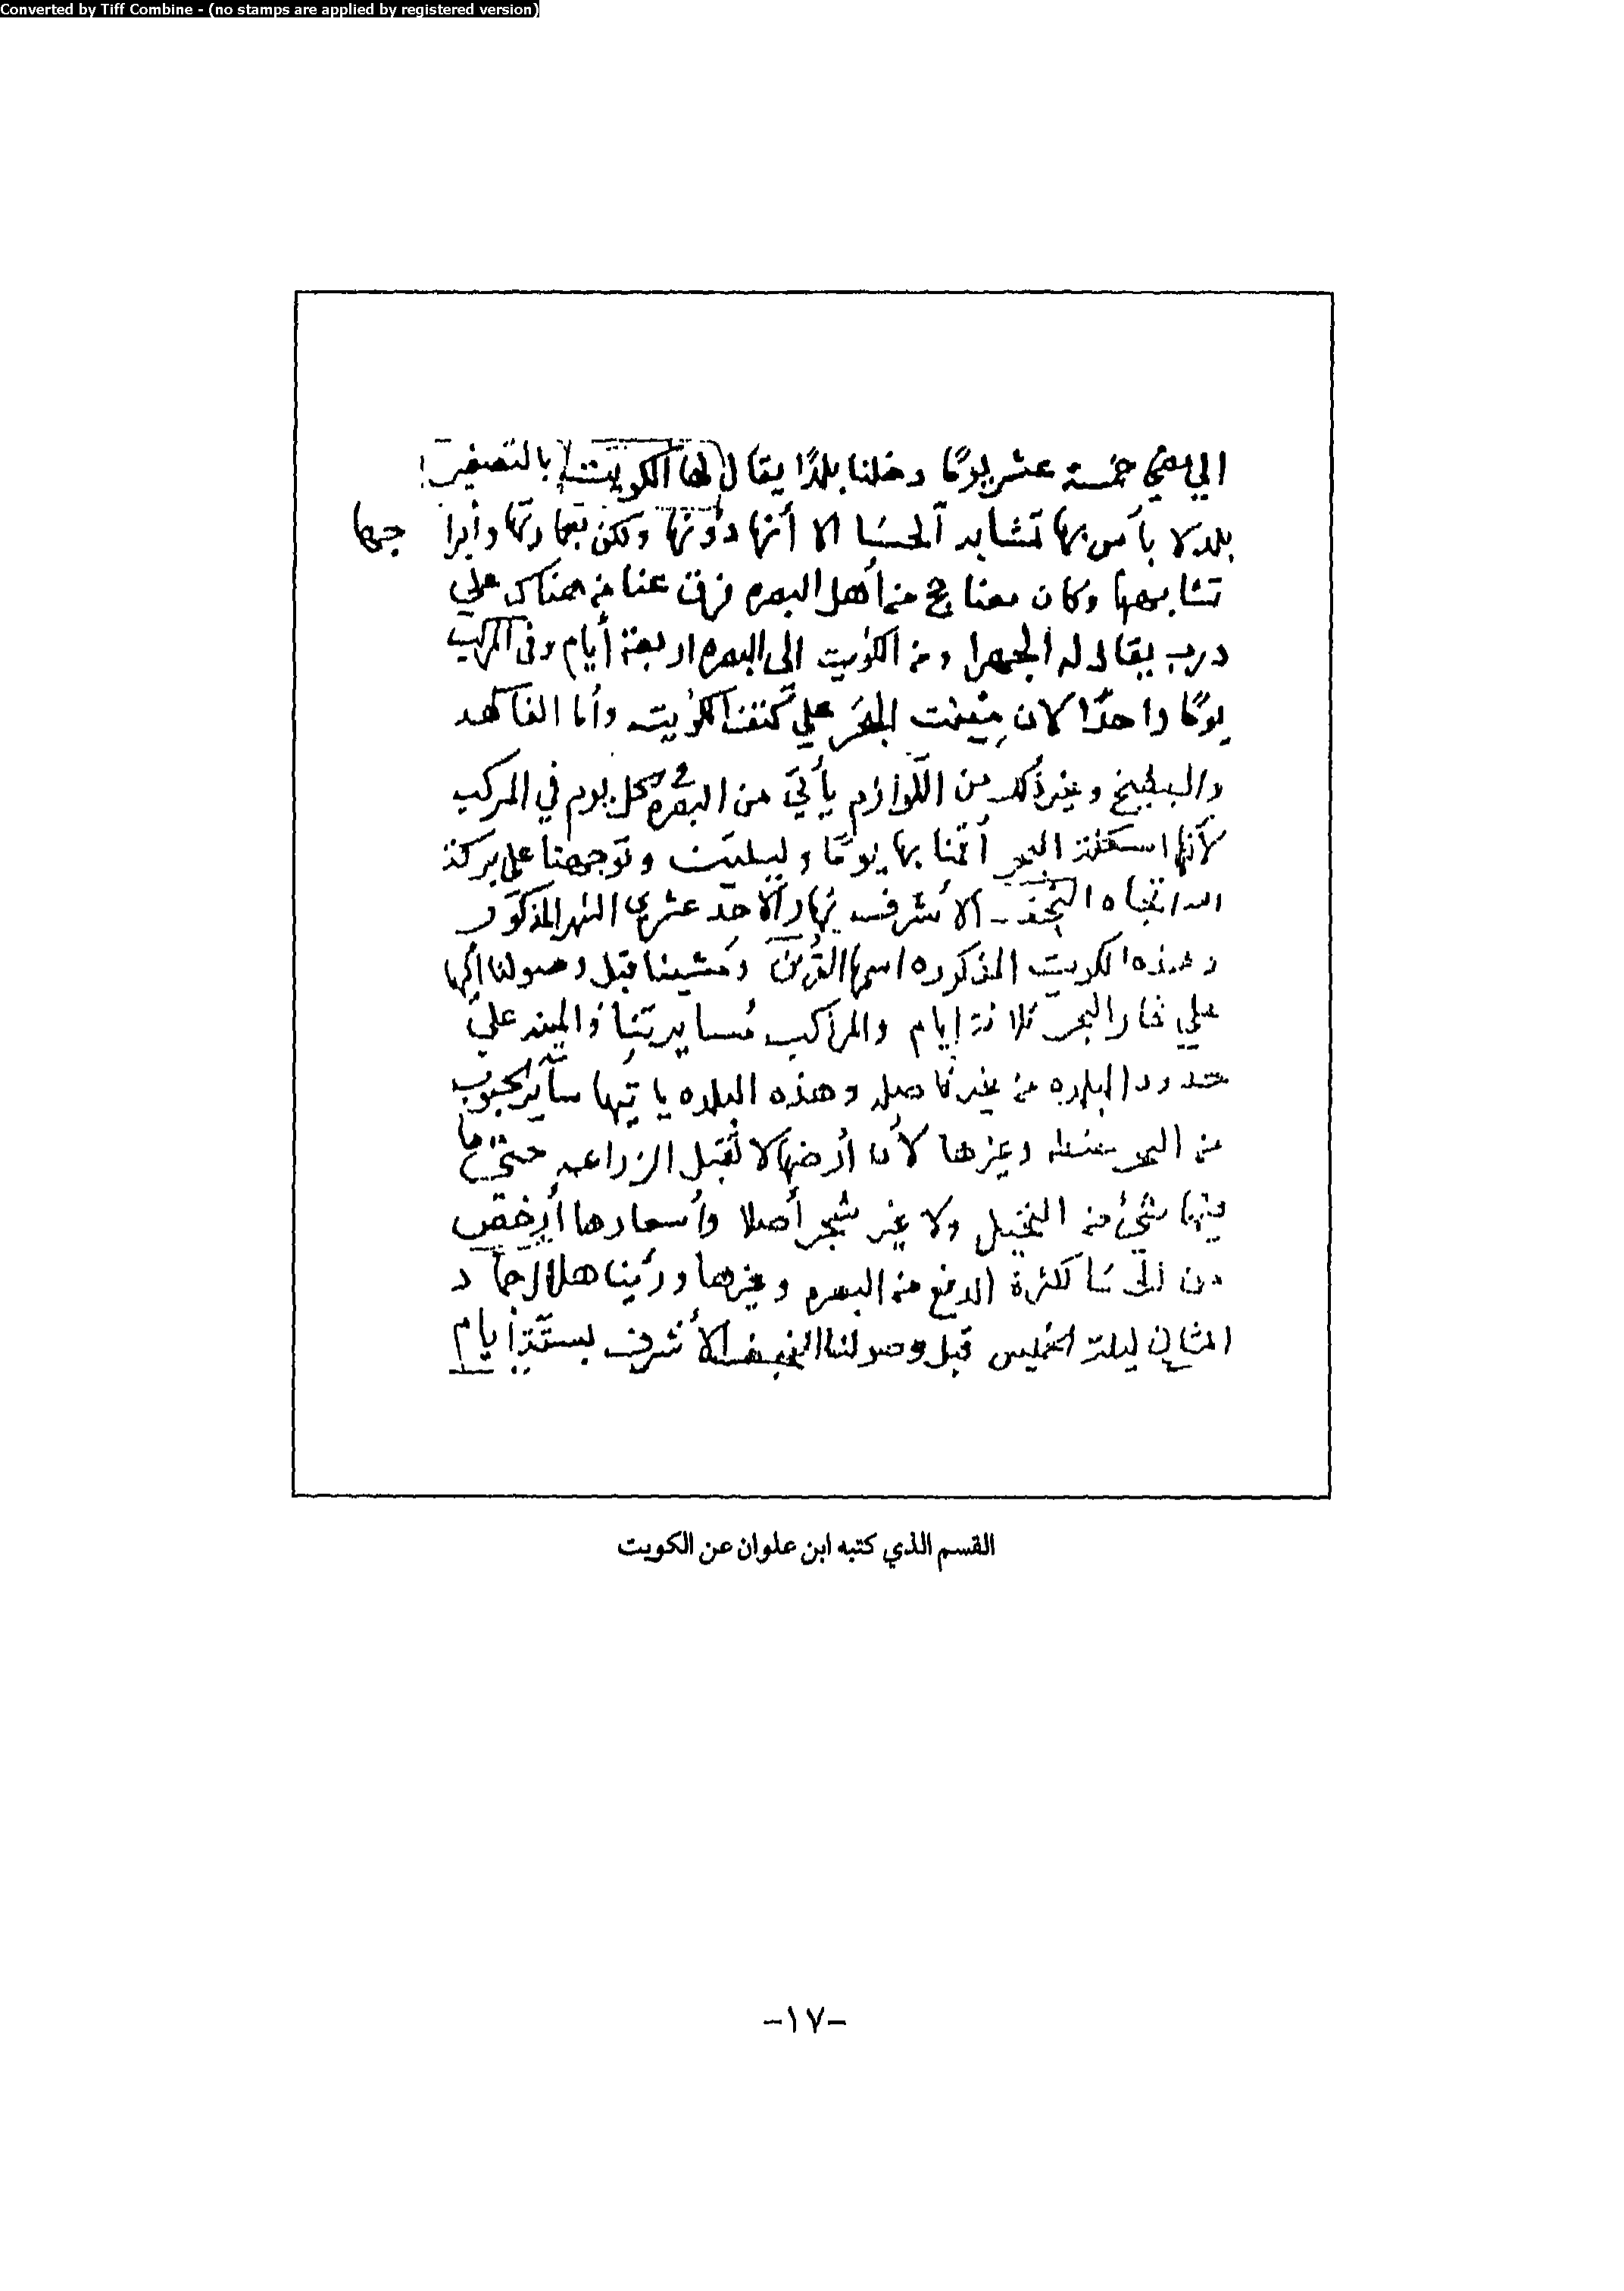 Converted by Tiff Combine - (no stamps are applied by registered version)
خمسة عشر يومًا دخلنا بلدًا يقال لها الكويت بالتصغير
بلد لا بأس بها تشابه الحسا الا أنها دونها ولكن بعمارتها وأبراجها
تشابهها وكان معنا حج من أهل البصره فرق عنا من هناك علي
درب يقال له الجهرا ومن الكويت الى البصره اربعة أيام وفي المركب
يومًا واحدًا لان البحر علي كتف الكويت وأما الفاكهه
والبطيخ وغير ذلك من اللوازم يأتي من البصره كل يوم في المركب
لأنها اسكلة البحر أقمنا بها يومًا وليلتين وتوجهنا علي بركة
الله اتجاه النجف الأشرف نهار الأحد عشري الشهر المذكور
وهذه الكويت المذكوره اسمها القرين ومشينا قبل وصولنا إليها
علي البحر ثلاثة إيام والمراكب مسايرتنا والمينه علي
حدود البلده من غير فاصله وهذه البلده يأتيها سائر الحبوب
من البحر حنطه وغيرها لأن أرضها لا تقبل الزراعه حتى ما
فيها شئ من النخيل ولا غير شجر أصلا وأسعارها أرخص
من الحسا لكثرة الدفع من البصره وغيرها ورأينا هلال جماد
الثاني ليلة الخميس قبل وصولنا النجف الأشرف بستة أيام
القسم الذي كتبه ابن علوان عن الكويت
-١٧-